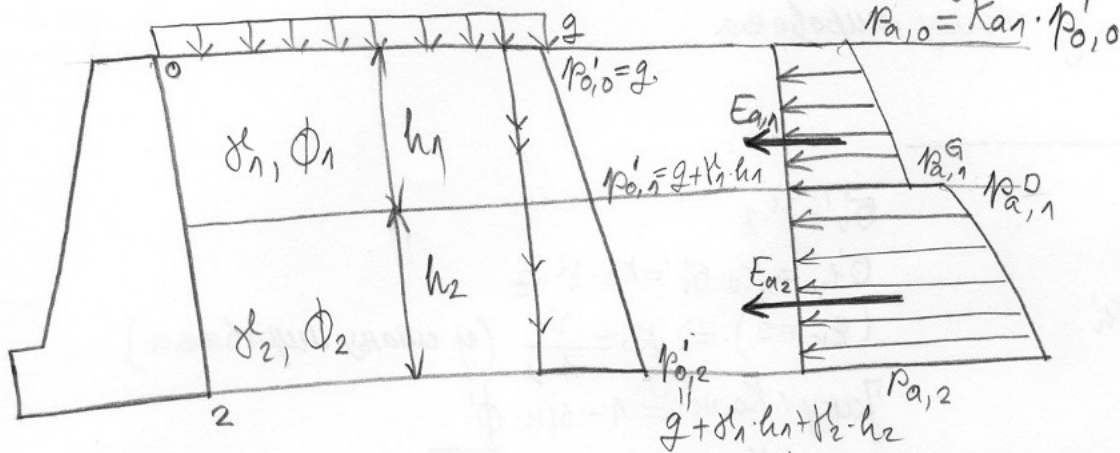 g
Pa,0 = Ka1 · p'0,0
0
p'0,0 = g
γ1, ϕ1
h1
Ea,1
p'0,1 = g + γ1 · h1
Pa,1 G
Pa,1 D
h2
Ea2
γ2, ϕ2
2
p'0,2
Pa,2
g + γ1 · h1 + γ2 · h2